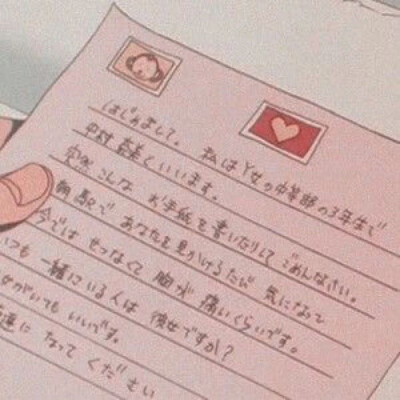 はじめまして。 私はY女の中等部の3年生で
中村 といいます。
突然 こんな お手紙を書いたりして ごめんなさい。
朝 駅で あなたを見かけるたび 気になって
今では せつなくて 胸が 痛いくらいです。
いつも 一緒にいる人は 彼女ですか?
女がいても いいです。
達に なって ください